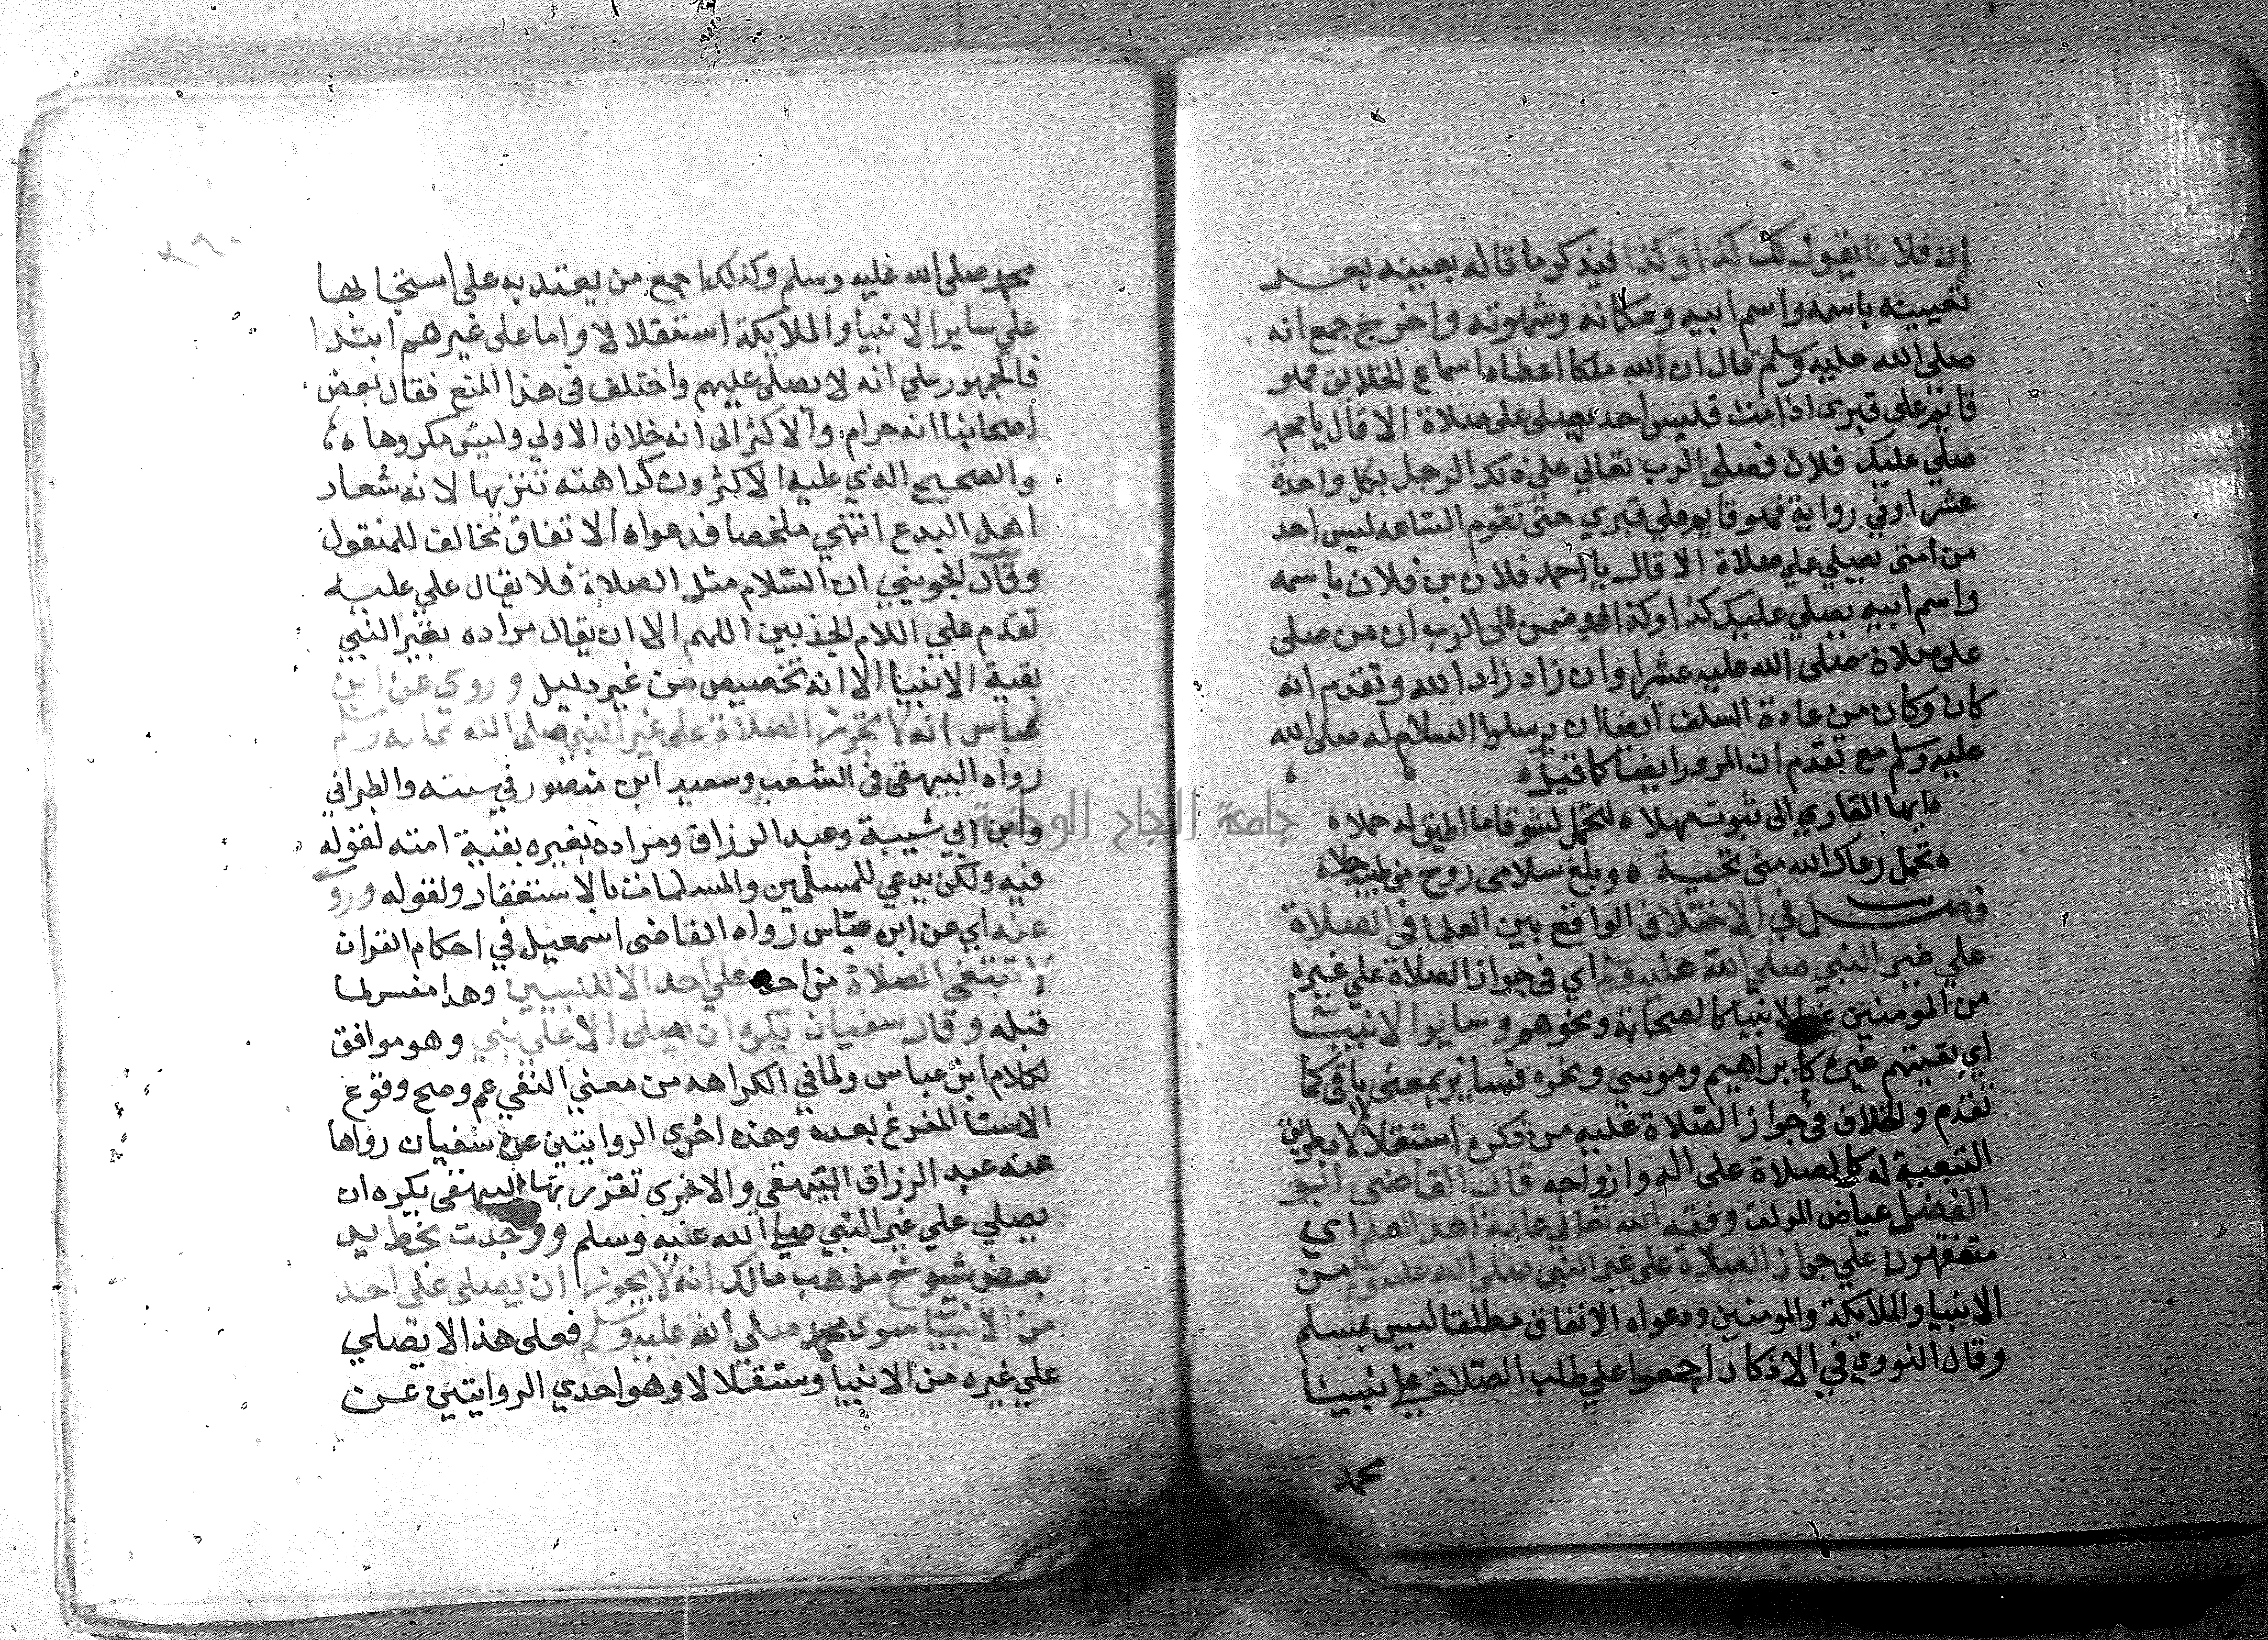 ان فلانا يقول لك كذا وكذا فيذكر ما قاله بعينه بعد
تعيينه باسمه واسم ابيه ومكانه وشهوته واخرج جمع انه
صلى الله عليه وسلم قال ان لله ملكا اعطاه اسماع الخلايق فهو
قايم على قبرى اذا مت فليس احد يصلى على صلاة الا قال يا محمد
صلي عليك فلان فصلى الرب تعالي على ذلك الرجل بكل واحدة
عشرا وفي رواية فهو قايم علي قبري حتى تقوم الساعه ليس احد
من امتى يصلي علي صلاة الا قال يا احمد فلان بن فلان باسمه
واسم ابيه يصلي عليك كذا وكذا وضمن لى الرب ان من صلى
على صلاة صلى الله عليه عشرا وان زاد زاد الله وتقدم انه
كان وكان من عادة السلف ايضا ان يرسلوا السلام له صلى الله
عليه وسلم مع تقدم ان المرور ايضا كما قيل
ايها القاري الى مهلا لتحمل شوقا ما اطيق له حملا
تحمل رعاك الله منى تحية وبلغ سلامى روح من طيبة حلا
فصل في الاختلاف الواقع بين العلما فى الصلاة
علي غير النبي صلي الله عليه وسلم اي فى جواز الصلاة علي غيره
من المومنين غير الانبيا كالصحابة ونحوهم وساير الانبيا
اي بقيتهم غيره كابراهيم وموسي ونحوه فساير بمعنى باقى كما
تقدم والخلاف فى جواز الصلاة عليه من ذكره استقلالا لا بطريق
التبعية له كالصلاة على اله وازواجه قال القاضى ابو
الفضل عياض المولف وفقه الله تعالي عامة اهل العلم اي
متفقون علي جواز الصلاة على غير النبي صلى الله عليه وسلم من
الانبيا والملايكة والمومنين ودعواه الاتفاق مطلقا ليس بمسلم
وقال النووي في الاذكار اجمعوا علي طلب الصلاة علي نبينا
محمد
محمد صلى الله عليه وسلم وكذلك اجمع من يعتد به على استحبابها
علي ساير الانبيا والملايكة استقلالا واما على غيرهم ابتدا
فالجمهور علي انه لا يصلى عليهم واختلف فى هذا المنع فقال بعض
اصحابنا انه حرام والاكثر الى انه خلاف الاولي وليس مكروها
والصحيح الذي عليه الاكثرون كراهته تنزيها لانه شعار
اهل البدع انتهي ملخصا فدعواه الاتفاق مخالف للمنقول
وقال الجويني ان السلام مثل الصلاة فلا يقال علي عليه
تقدم علي اللهم الا ان يقال مراده بغير النبي
بقية الانبيا الا انه تخصيص من غير دليل وروي عن ابن
عباس انه لا تجوز الصلاة على غير النبي صلى الله عليه وسلم
رواه البيهقى فى الشعب وسعيد ابن منصور في سننه والطبراني
وابن ابي شيبة وعبد الرزاق ومراده بغيره بقية امته لقوله
فيه ولكن يدعي للمسلمين والمسلمات بالاستغفار ولقوله ورو
عنه اي عن ابن عباس رواه القاضى اسمعيل في احكام القران
لا تبتغى الصلاة من احد علي احد الا للنبيين وهذا مفسر لما
قبله وقال سفيان يكره ان يصلى الا على نبي وهو موافق
لكلام ابن عباس ولما في الكراهه من معني النفي عم وصح وقوع
الاستثنا المفرغ بعده وهذه احدي الروايتين عن سفيان رواها
عنه عبد الرزاق البيهقي والاخرى البيهقى يكره ان
يصلي علي غير النبي صلى الله عليه وسلم ووجدت بخط يد
بعض شيوخ مذهب مالك انه لا يجوز ان يصلى علي احد
من الانبيا سوى محمد صلي الله عليه وسلم فعلى هذا لا يصلي
علي غيره من الانبيا مستقلا لا وهو احدي الروايتين عن
جامعة النجاح الوطنية